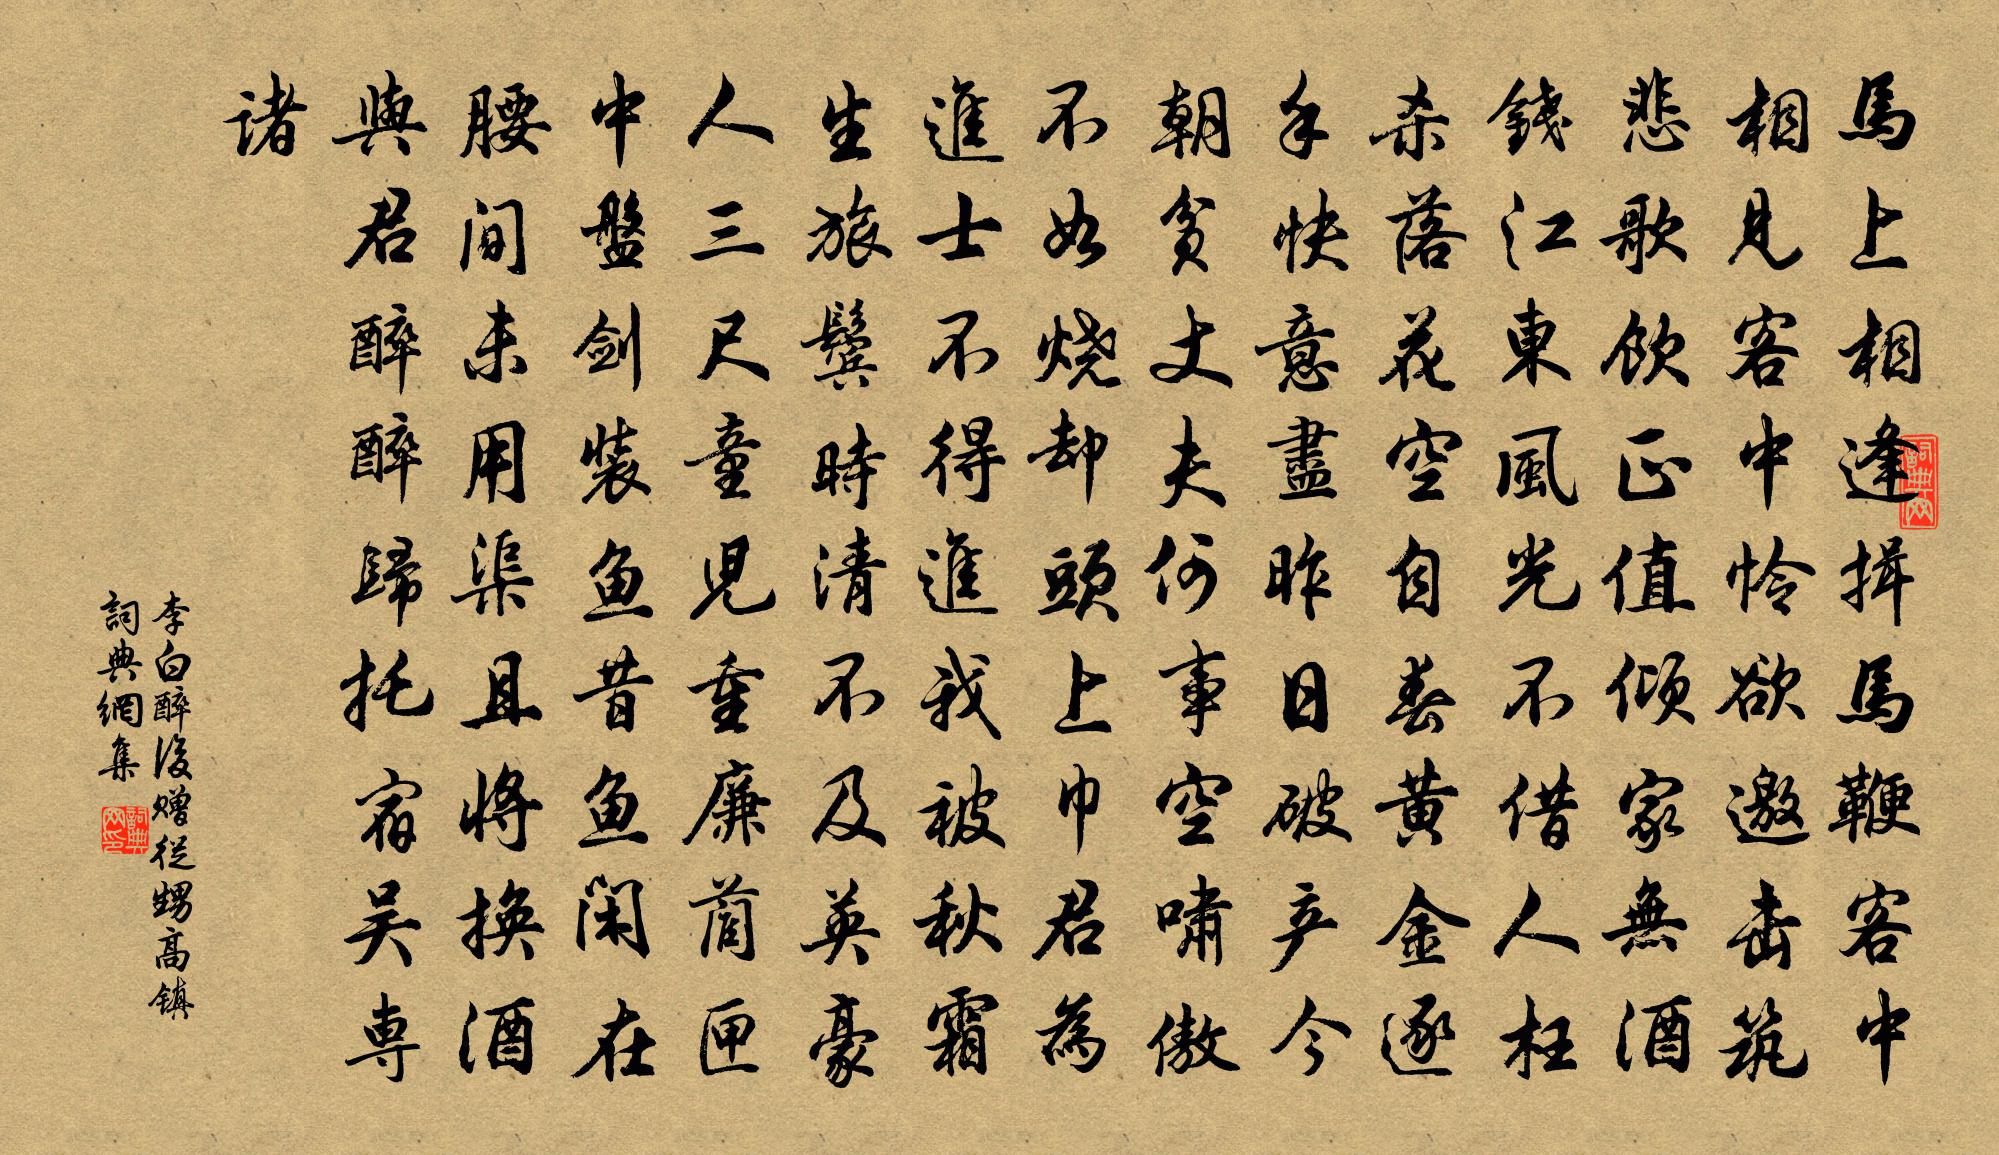 馬上相逢揖馬鞭客中
相見客中怜欲邀击筑
悲歌飲正值傾家無酒
錢江東風光不借人枉
杀落花空自春黄金逐
手快意盡昨日破产今
朝貧丈夫何事空嘯傲
不如烧却頭上巾君為
進士不得進我被秋霜
生旅鬓時清不及英豪
人三尺童児重廉藺匣
中盤剑装鱼昔鱼闲在
腰间未用渠且將换酒
與君醉醉歸托宿吴専
诸
李白醉後赠從甥高镇
詞典網集
詞典网
詞典网印